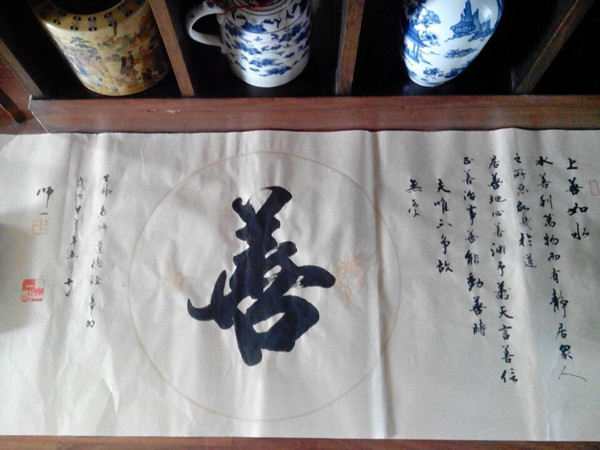 上善如水
水善利萬物而有靜居眾人
之所惡故幾於道
居善地心善淵予善天言善信
正善治事善能動善時
夫唯不爭故
無尤
善
師一